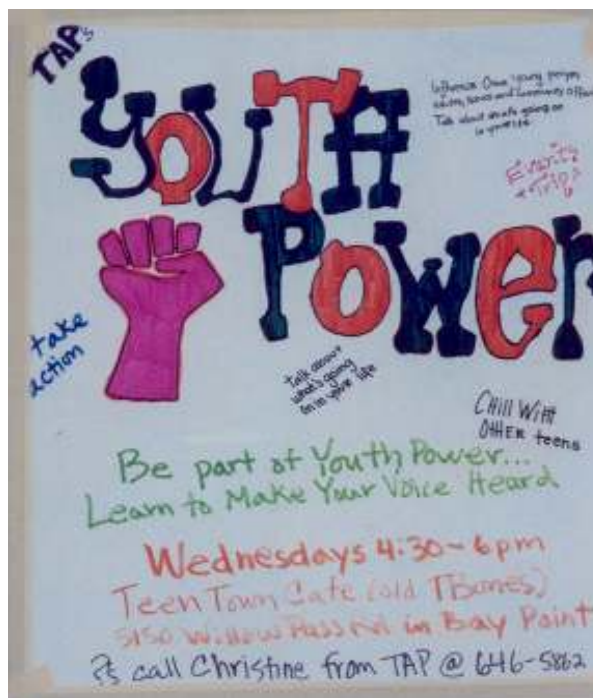 TAP's
YOUTH
POWER
Talk about whats going on
in your life
Events
+ Trips
take
action
Talk about
what's going
on in your life
CHill WitH
OtHER teens
Be part of Youth Power...
Learn to Make Your Voice Heard
Wednesdays 4:30-6pm
Teen Town Cafe (old TBones)
5150 Willow Pass Rd in Bay Point
?s call Christine from TAP @ 646-5862